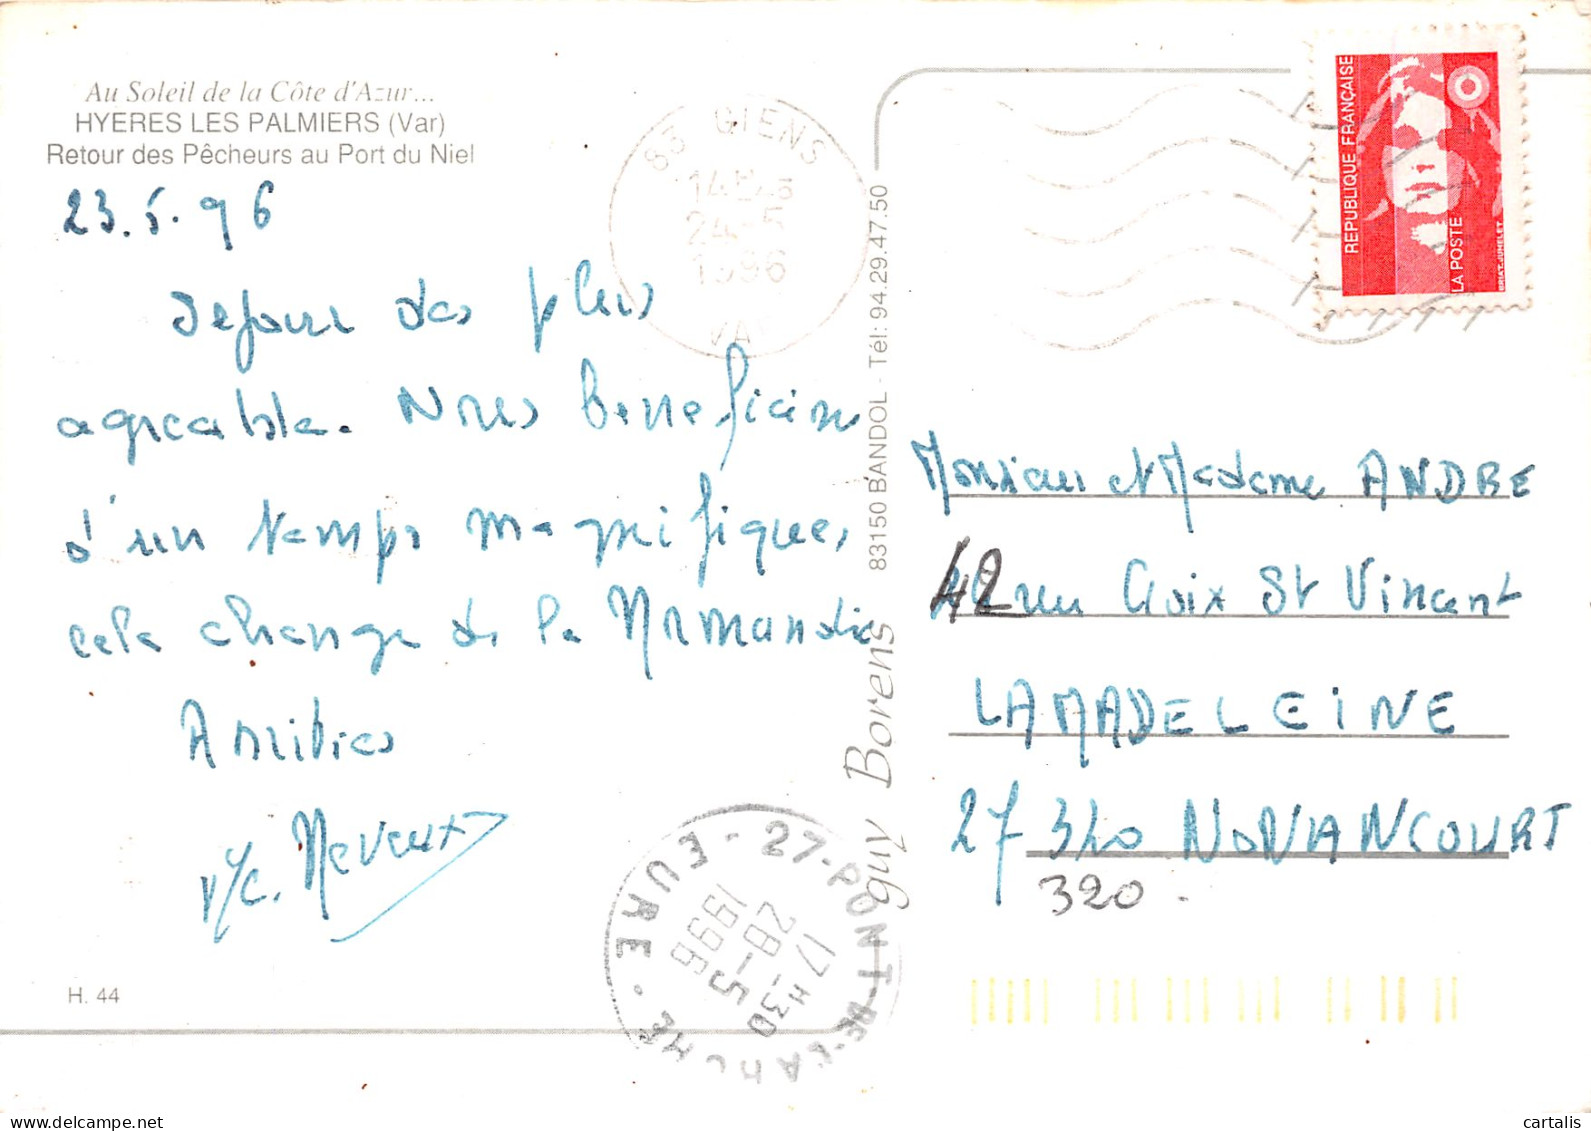 Au Soleil de la Côte d'Azur...
HYERES LES PALMIERS (Var)
Retour des Pêcheurs au Port du Niel
23.5.96
Séjour des plus
agreable. Nous beneficions
d'un temps magnifique,
cela change de la Normandie
Amitiés
Neveux
H. 44
83 GIENS
14H45
24-5
1996
VAR
guy Borens
83150 BANDOL - Tél: 94.29.47.50
27-PONT-DE-L'ARCHE
EURE
17H30
28-5
1996
REPUBLIQUE FRANÇAISE
LA POSTE
BRIAT-JUMELET
Monsieur et Madame ANDRE
42 rue Croix St Vincent
LA MADELEINE
27340 NONANCOURT
320.
cartalis
delcampe.net